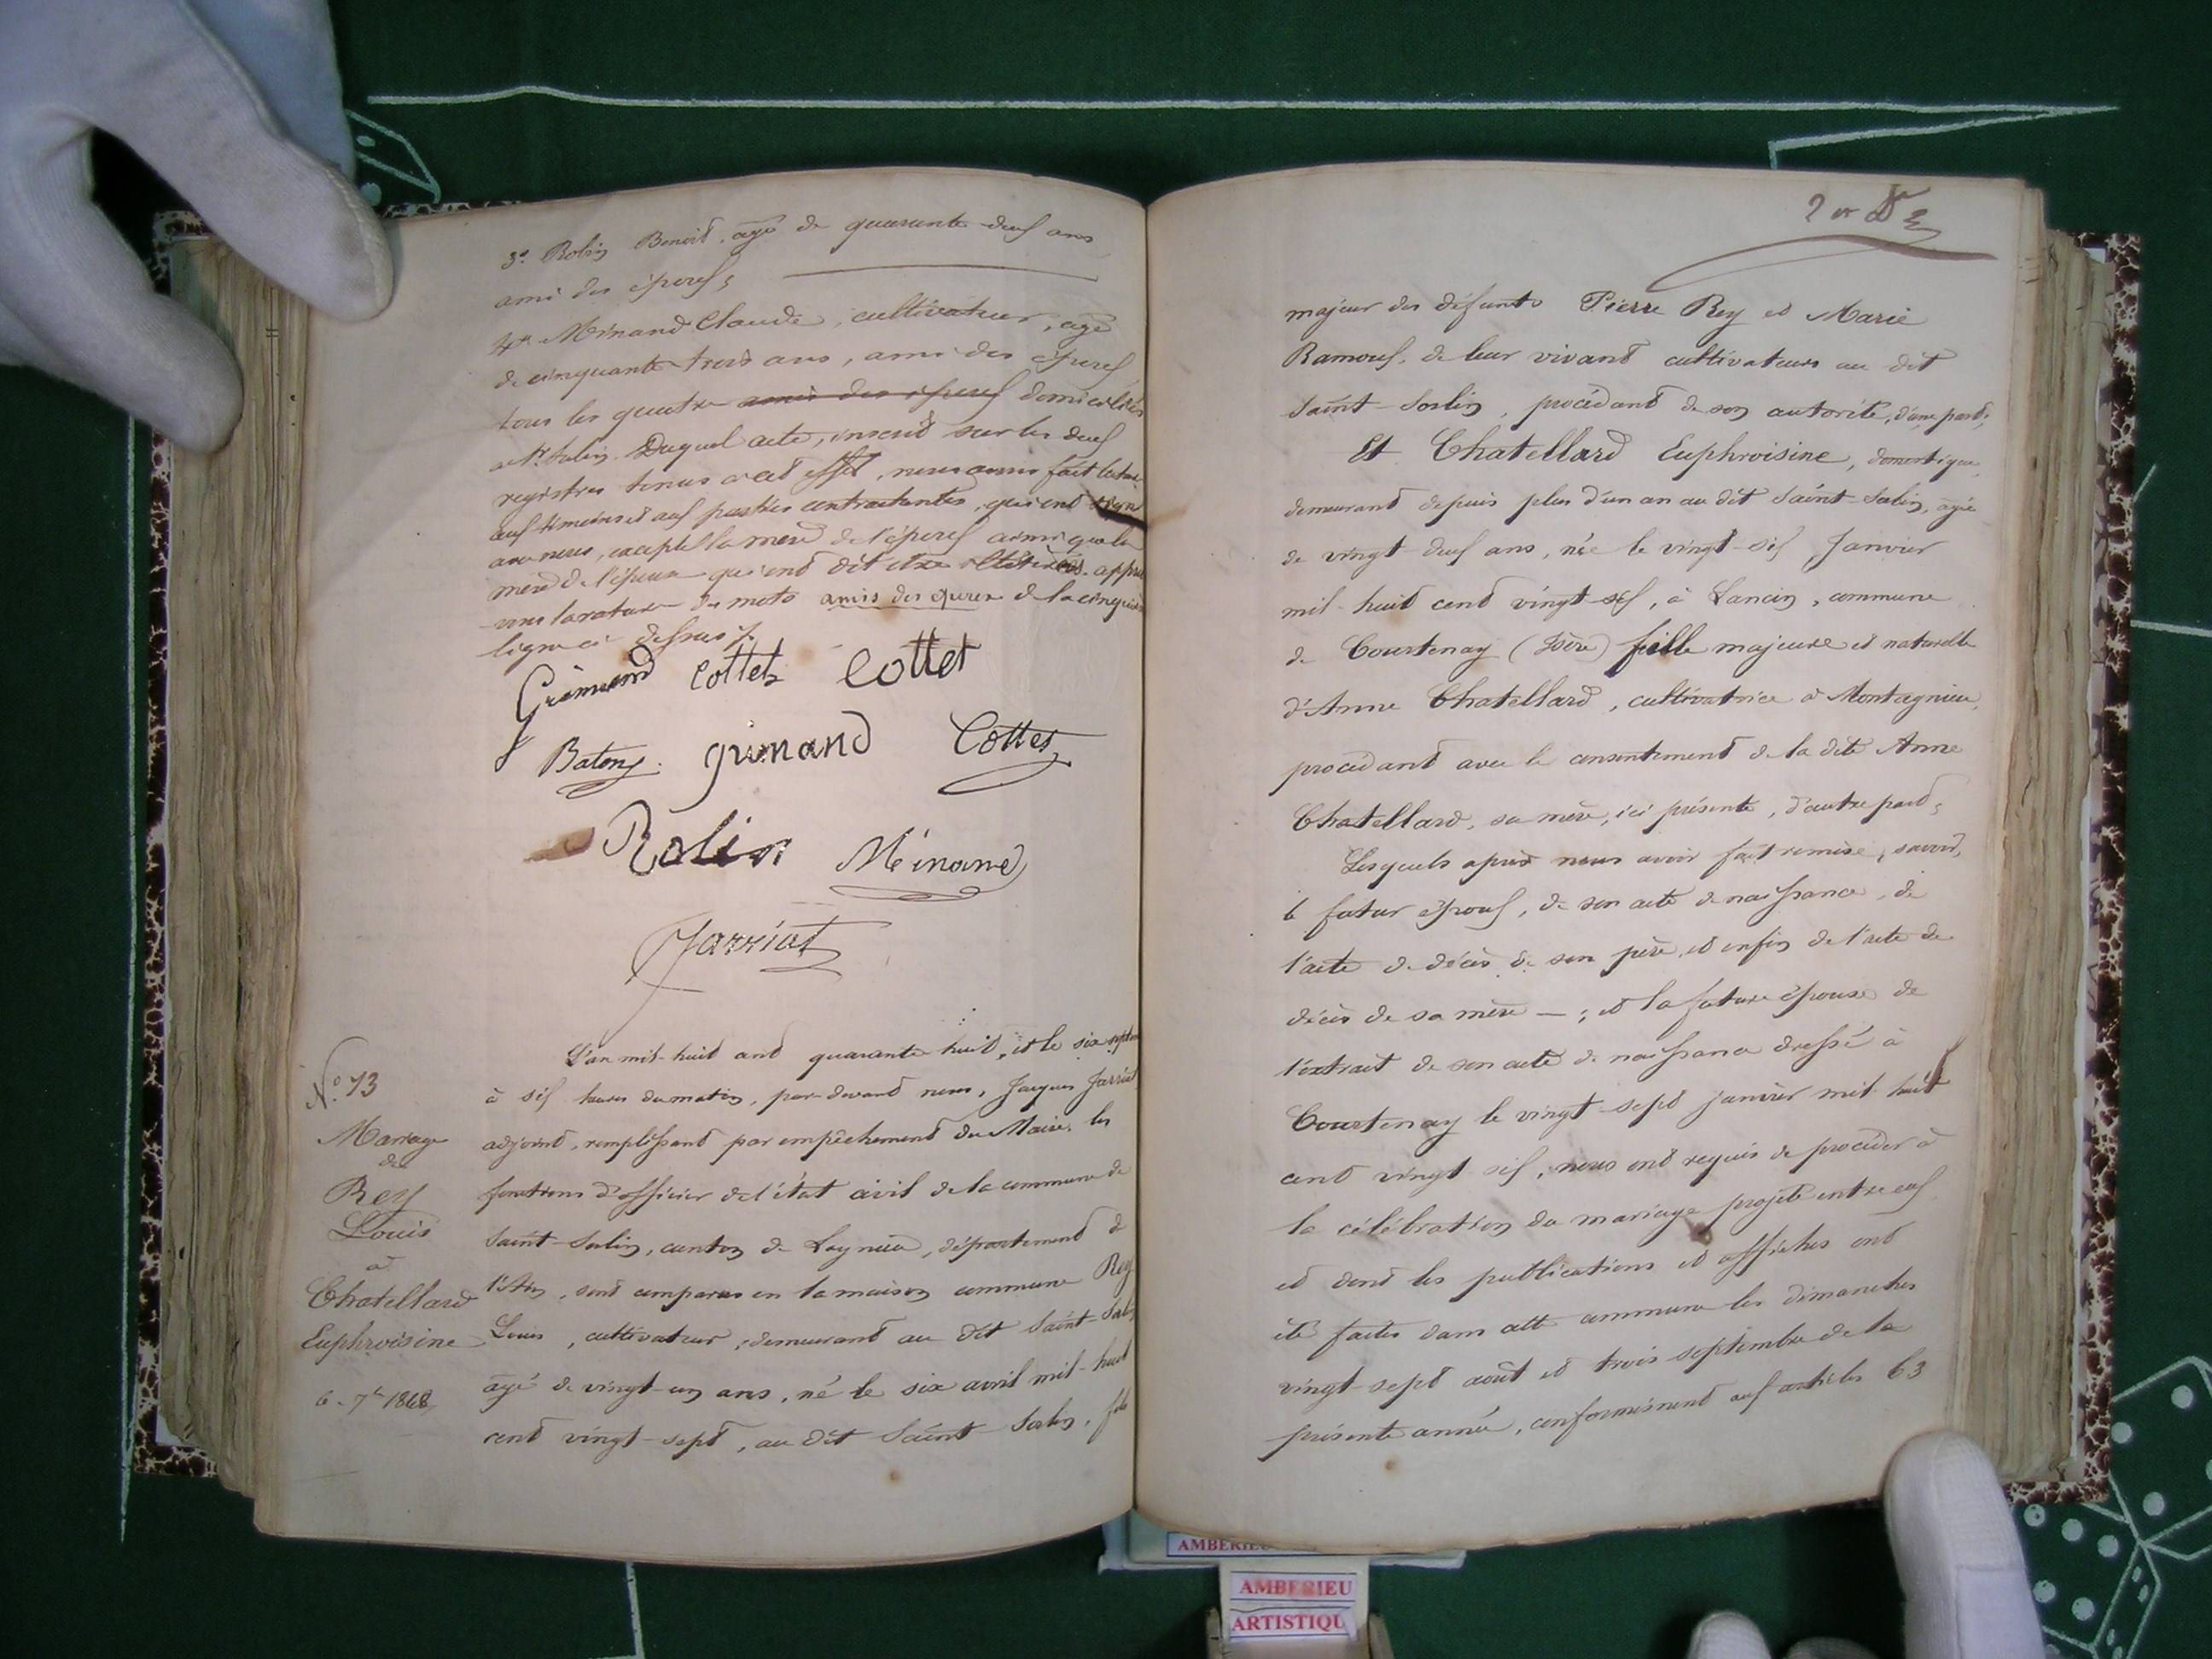 3º. Robin Benoit, agé de quarante-deux ans,
ami des époux;
4º. Minand Claude, cultivateur, agé
de cinquante-trois ans, ami des époux
tous les quatre amis des époux domiciliés
à St. Sorlin. Duquel acte, inscrit sur les deux
registres tenus à cet effet, nous avons fait lecture
aux témoins et aux parties contractantes, qui ont signé
avec nous, excepté la mère de l'époux ainsi que la
mère de l'épouse qui ont dit être illétirées. appro
uvons la rature des mots amis des époux de la cinquième
ligne ci dessus ./.
Grimand Cottet Cottet
Baton grimand Cottet
Robin Ménand
Jarriat
Nº. 73
Mariage
de
Rey
Louis
à
Chatellard
Euphroisine
6. 7bre 1848
L'an mil-huit cent quarante-huit, et le six septem
à six heures du matin, par-devant nous, Jacques Jarriat
adjoint, remplissant par empêchement du Maire, les
fonctions d'officier de l'état civil de la commune de
Saint-Sorlin, canton de Lagnieu, département de
l'Ain, sont comparus en la maison commune Rey
Louis, cultivateur, demeurant au dit Saint-Sorlin
agé de vingt-un ans, né le six avril mil-huit
cent vingt-sept, au dit Saint-Sorlin, fils
majeur des défunts Pierre Rey et Marie
Ramoux, de leur vivant cultivateurs au dit
Saint-Sorlin, procédant de son autorité, d'une part;
Et Chatellard Euphroisine, domestique,
demeurant depuis plus d'un an au dit Saint-Sorlin, agée
de vingt-deux ans, née le vingt-six Janvier
mil-huit cent vingt-six, à Lancin, commune
de Courtenay (Isère) fille majeure et naturelle
d'Anne Chatellard, cultivatrice à Montagnieu,
procédant avec le consentement de la dite Anne
Chatellard, sa mère, ici présente, d'autre part;
Lesquels après nous avoir fait remise, savoir,
le futur époux, de son acte de naissance, de
l'acte de décès de son père, et enfin de l'acte de
décès de sa mère — ; et la future épouse de
l'extrait de son acte de naissance dressé à
Courtenay le vingt-sept janvier mil huit
cent vingt six, nous ont requis de procéder à
la célébration du mariage projeté entre eux
et dont les publications et affiches ont
été faites dans cette commune les dimanches
vingt-sept août et trois septembre de la
présente année, conformément aux articles 63
AMBERIEU
AMBERIEU
ARTISTIQU